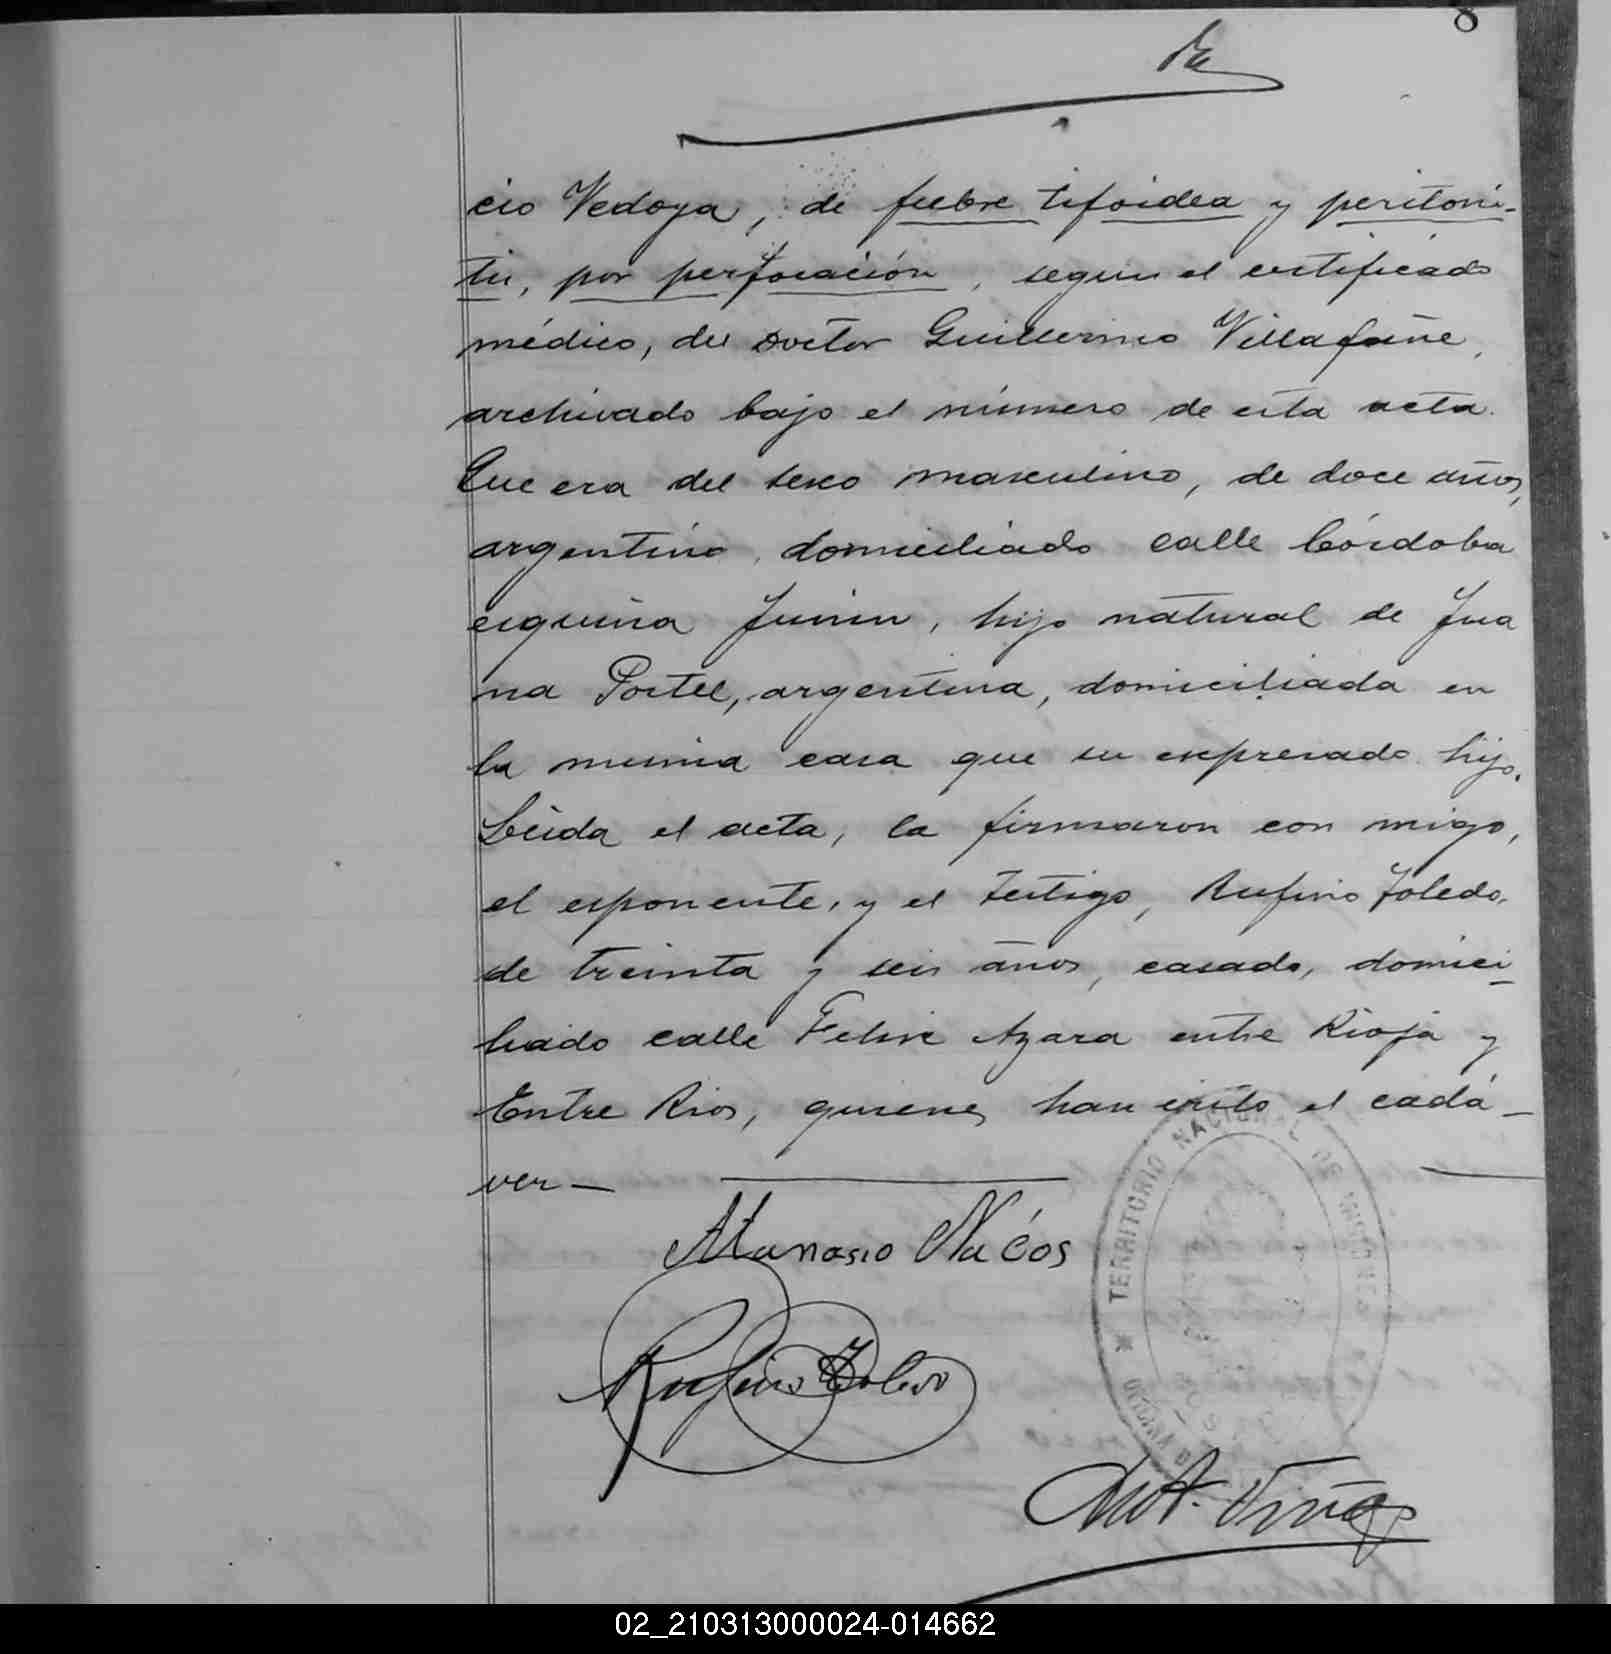 8
cio Vedoya, de fiebre tifoidea y peritoni-
tis, por perforación, segun el certificado
médico, del Doctor Guillermo Villafañe,
archivado bajo el número de esta acta.
Que era del sexo masculino, de doce años,
argentino, domiciliado calle Córdoba
esquina Junin, hijo natural de Jua
na Portel, argentina, domiciliada en
la misma casa que su expresado hijo.
Leida el acta, la firmaron con migo,
el esponente, y el testigo, Rufino Toledo,
de treinta y seis años, casado, domici-
liado calle Felix Azara entre Rioja y
Entre Rios, quienes han visto el cadá-
ver—
Atanasio
Rufino Toledo
TERRITORIO NACIONAL DE MISIONES
02_210313000024-014662